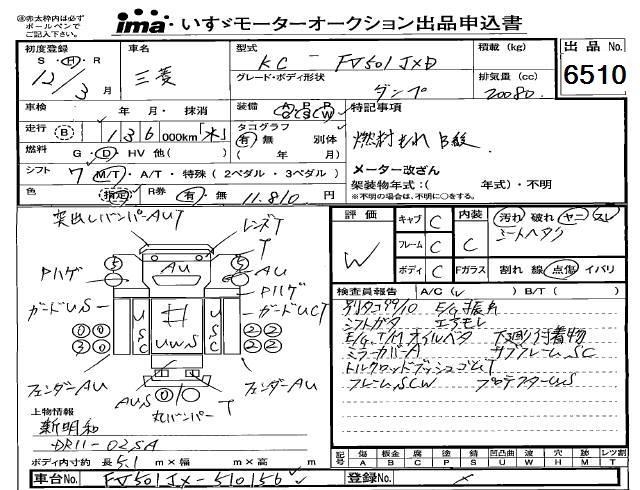 ※赤太枠内は必ずボールペンでご記入下さい。
ima いすゞモーターオークション出品申込書
初度登録 S・H・R 12/3月
車名 三菱
型式 KC - FV501JXD
グレード・ボディ形状 ダンプ
積載(kg)
排気量(cc) 20080
出品No. 6510
車検 年 月・抹消
走行 (B) 136 000km「水」
燃料 G・D・HV 他( )
シフト 7 M/T・A/T・特殊(2ペダル・3ペダル)
色 指定 R券 有・無 11.810 円
装備 AC PS PW
タコグラフ 有・無 別体
( 年 月)
特記事項
燃料もれ B級
メーター改ざん
架装物年式:( 年式)・不明
※不明の場合は、不明に○をする。
突出しバンパーAUT
レンズT
T
Pハゲ
AU
AU
Pハゲ
ガードUS
ガードUCT
USC
UWS
USC
フェンダーAU
フェンダーAU
AUS
丸バンパー T
上物情報
新明和
DR11-02SA
ボディ内寸約 長 5.1 m×幅 m×高 m
評価 W
キャブ C
フレーム C
ボディ C
内装 C
汚れ 破れ ヤニ スレ
シートヘタリ
Fガラス 割れ 線 点傷 イバリ
検査員報告 A/C( ✓ ) B/T( )
別タコ99/10 E/G振れ
シフトガタ エアモレ
E/G,T/Mオイルベタ 下廻り付着物
ミラーカバーA サブフレームSC
トルクロッドブッシュゴムT
フレームSCW プロテクターUS
記号 傷A 板金B 腐C 塗P 錆S 凹凸曲U 波W 穴H 染M レツ割T
車台No. FV501JX-510156
登録No.